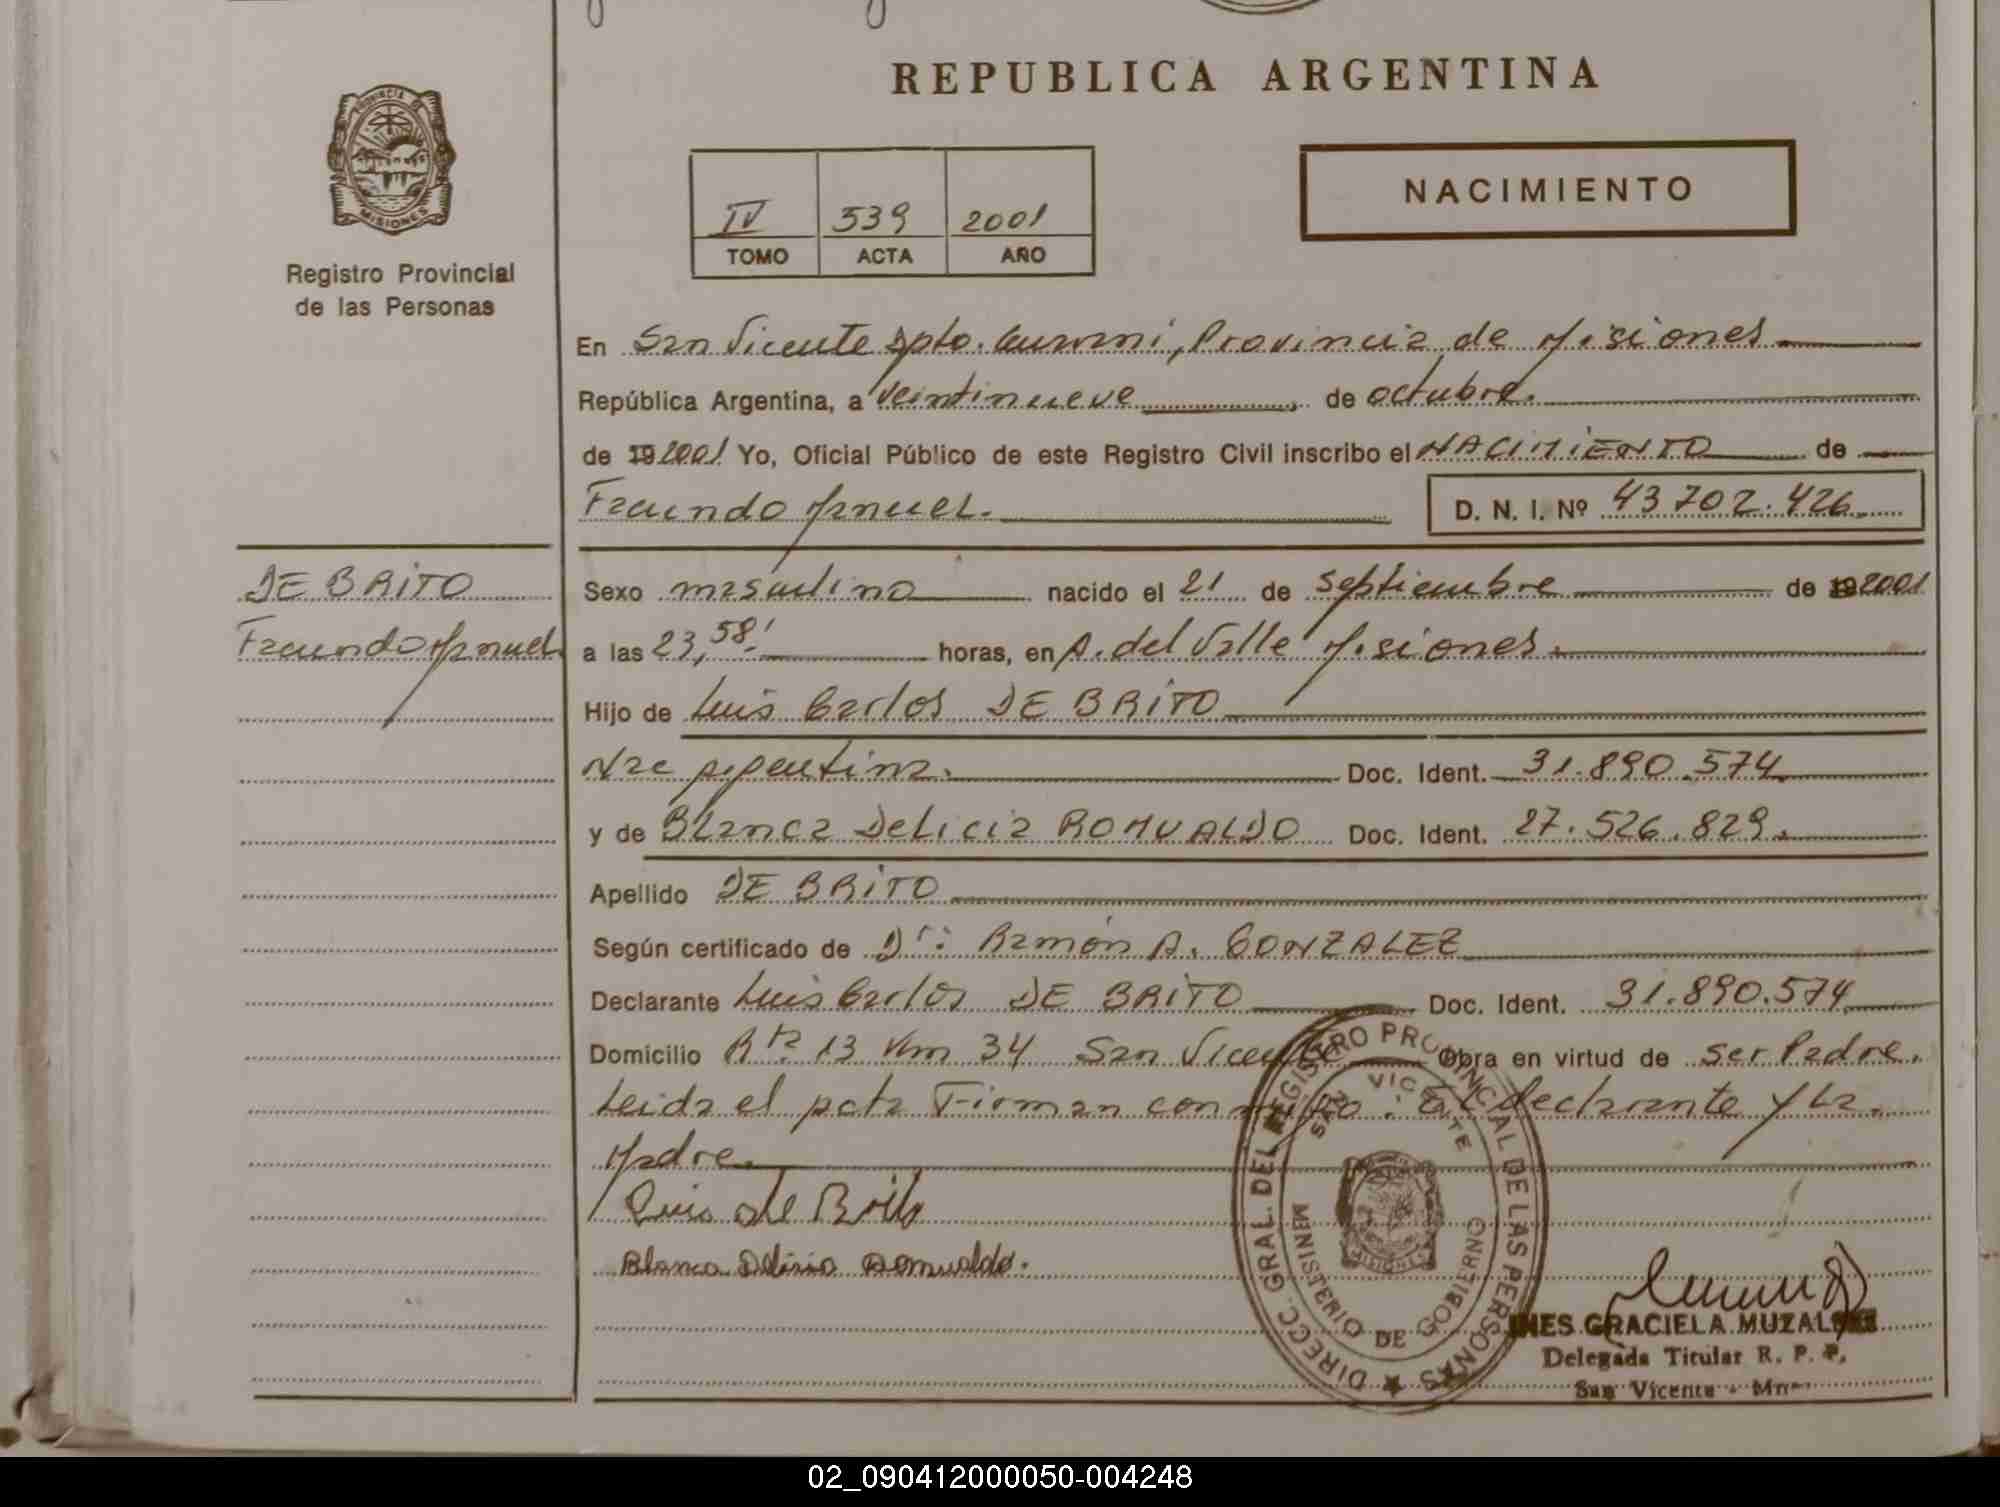 REPUBLICA ARGENTINA
PROVINCIA DE
MISIONES
Registro Provincial
de las Personas
IV 539 2001
TOMO ACTA AÑO
NACIMIENTO
En San Vicente Dpto. Guarani, Provincia de Misiones
República Argentina, a veintinueve de octubre.
de 19 2001 Yo, Oficial Público de este Registro Civil inscribo el NACIMIENTO de
Facundo Manuel. D. N. I. Nº 43702.426
DE BRITO
Facundo Manuel
Sexo masculino nacido el 21 de septiembre de 19 2001
a las 23,58' horas, en A. del Valle Misiones.
Hijo de Luis Carlos DE BRITO
Nac Argentina. Doc. Ident. 31.890.574
y de Blanca Delicia ROMUALDO Doc. Ident. 27.526.829.
Apellido DE BRITO
Según certificado de Dr: Ramón A. GONZALEZ
Declarante Luis Carlos DE BRITO Doc. Ident. 31.890.574
Domicilio Rta 13 Km 34 San Vicente Obra en virtud de ser Padre.
Leida el acta Firman conmigo: el declarante y la
Madre.
Luis de Brito
Blanca Delicia Romualdo.
DIRECC. GRAL. DEL REGISTRO PROVINCIAL DE LAS PERSONAS
SAN VICENTE
MINISTERIO DE GOBIERNO
MISIONES
INES GRACIELA
Delegada Titular R. P. P.
San Vicente - Mnes
02_090412000050-004248